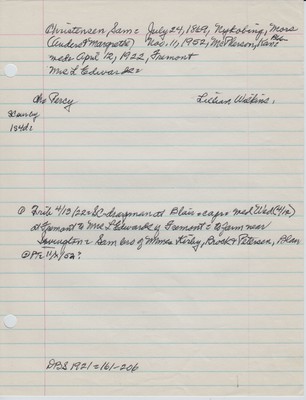 Christensen, Sam = July 24, 1869, Nykobing, Mors
(Anders & Margrethe) Nov. 11, 1952, McPherson, Kans
make April 12, 1922, Fremont
Mrs L Edwards
Percy Lillian Watkins,
① Trib 4/13/22 = SC of Blair = med (Wed (4/12)
at Fremont to Mrs L Edwards of Fremont = to farm near
Irvington = Sam bro of Mmes Kirby, Brock & Petersen, Blair
② 11/ /52?
DBS 1921 = 161-206